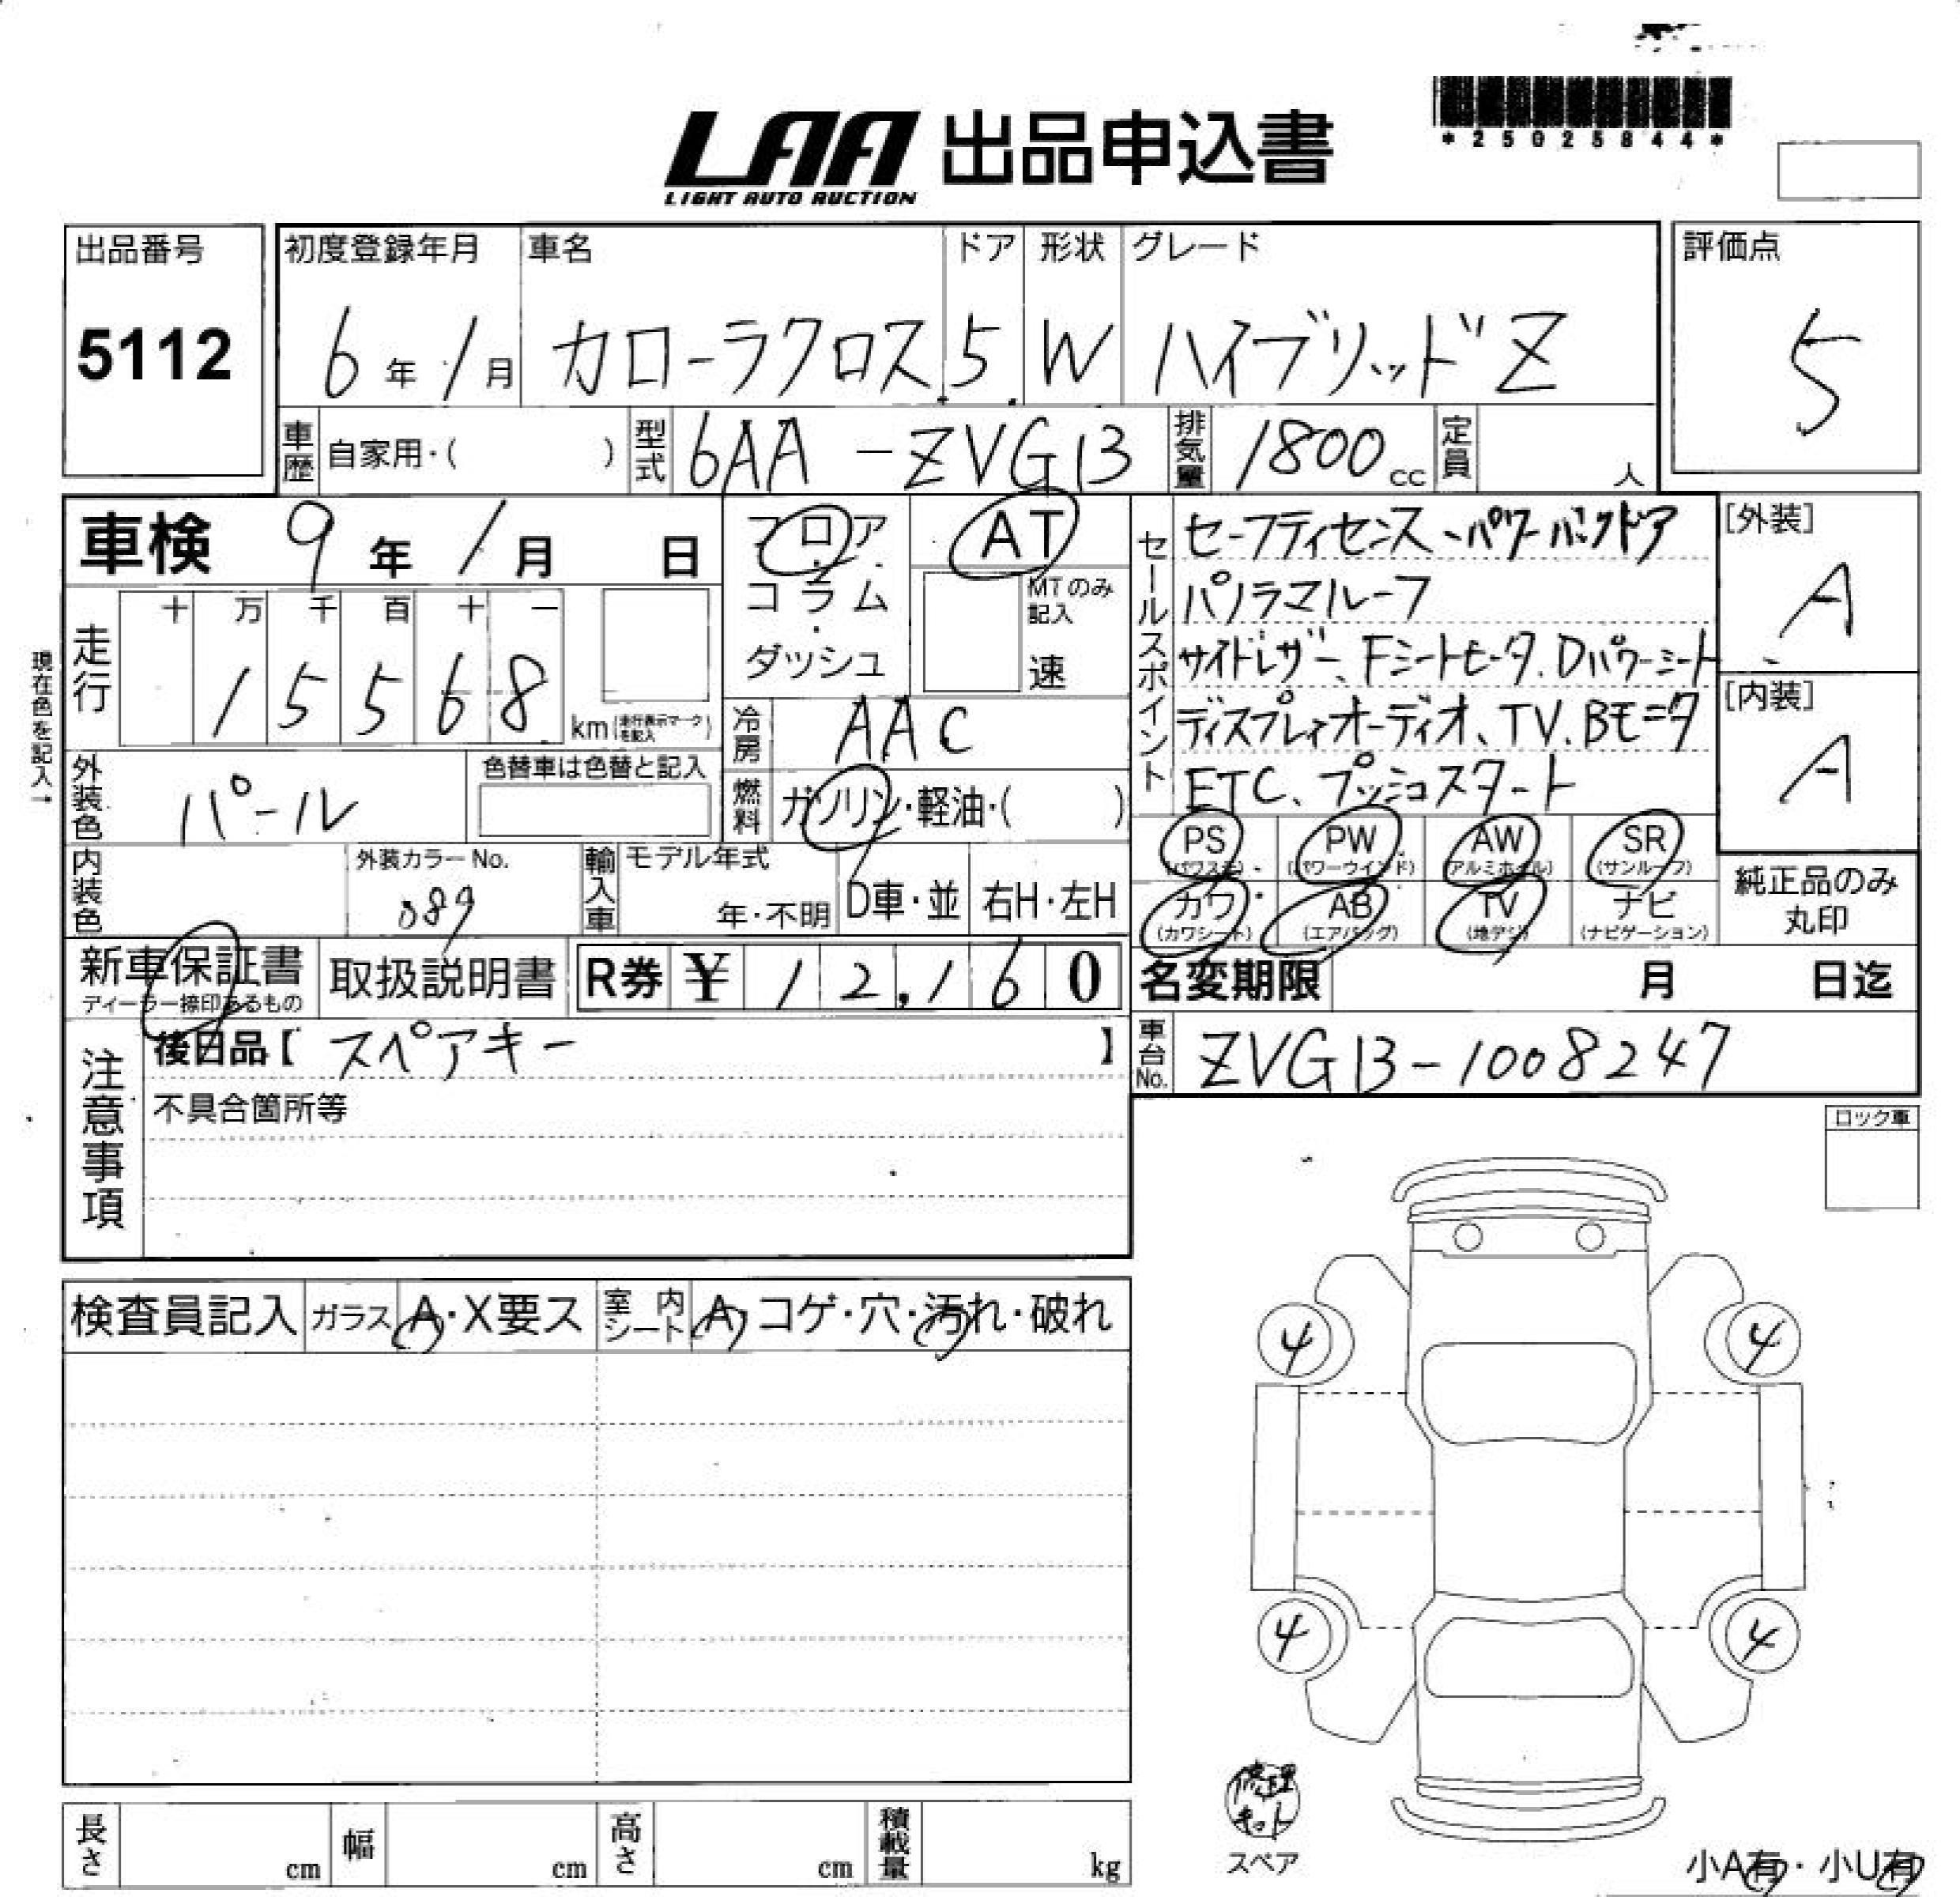 LAA 出品申込書
LIGHT AUTO AUCTION
*25025844*
出品番号
5112
初度登録年月 車名 ドア 形状 グレード
6年 1月 カローラクロス 5 W ハイブリッドZ
評価点
5
車歴 自家用・( ) 型式 6AA-ZVG13 排気量 1800cc 定員 人
車検 9年 1月 日
フロア・コラム・ダッシュ
AT
MTのみ記入
速
現在色を記入→
走行 十 万 千 百 十 一
15568 km (走行表示マークを記入)
冷房 AAC
燃料 ガソリン・軽油・( )
外装色 パール 色替車は色替と記入
内装色 外装カラーNo. 089
輸入車 モデル年式 年・不明 D車・並 右H・左H
セールスポイント
セーフティセンス、パワーバックドア
パノラマルーフ
サイドレザー、Fシートヒータ、Dパワーシート
ディスプレイオーディオ、TV、Bモニタ
ETC、プッシュスタート
[外装]
A
[内装]
A
PS (パワステ) PW (パワーウインド) AW (アルミホイル) SR (サンルーフ)
カワ (カワシート) AB (エアバッグ) TV (地デジ) ナビ (ナビゲーション)
純正品のみ丸印
新車保証書 ディーラー捺印あるもの 取扱説明書 R券 ¥ 12,160
名変期限 月 日迄
車台No. ZVG13-1008247
注意事項
後日品【 スペアキー 】
不具合箇所等
ロック車
検査員記入 ガラス A・X要ス 室内シート A・コゲ・穴・汚れ・破れ
4 4
4 4
修理キット
スペア
長さ cm 幅 cm 高さ cm 積載量 kg
小A有・小U有